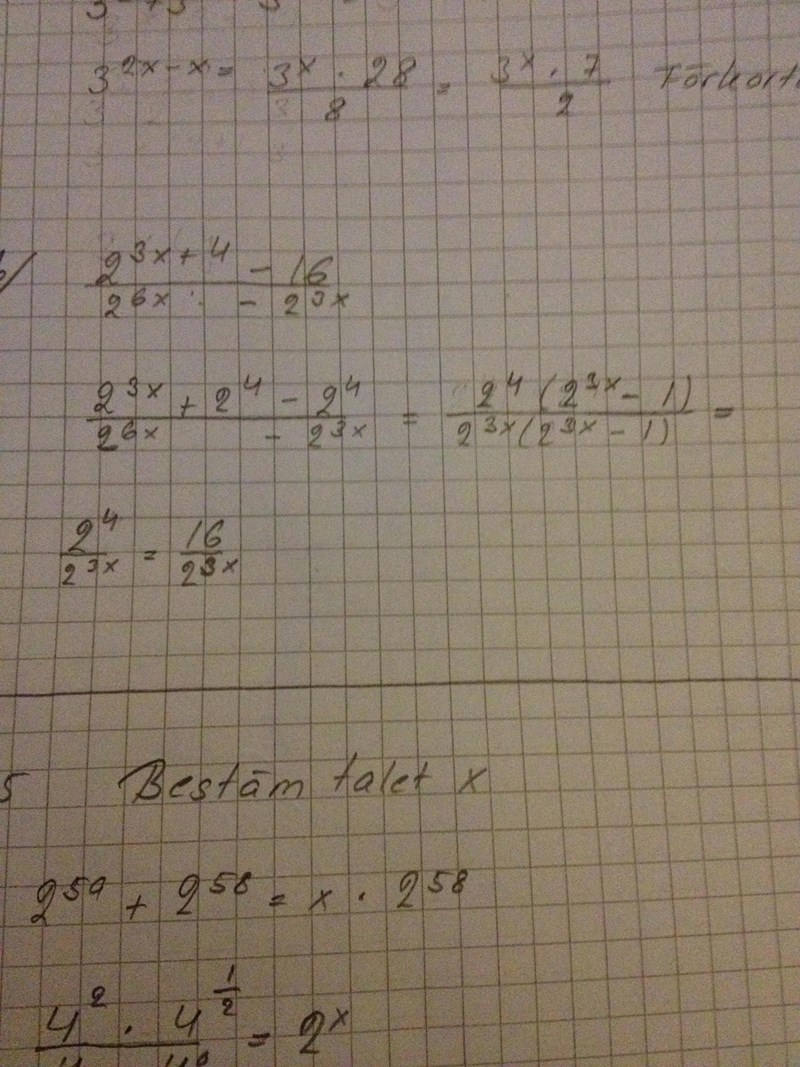 3^{2x-x} = \frac{3^x · 28}{8} = \frac{3^x · 7}{2}
\frac{2^{3x+4} - 16}{2^{6x} - 2^{3x}}
\frac{2^{3x} + 2^4 - 2^4}{2^{6x} - 2^{3x}} = \frac{2^4 (2^{3x} - 1)}{2^{3x} (2^{3x} - 1)} =
\frac{2^4}{2^{3x}} = \frac{16}{2^{3x}}
5 Bestäm talet x
2^{59} + 2^{58} = x · 2^{58}
4^2 · 4^{\frac{1}{2}} = 2^x